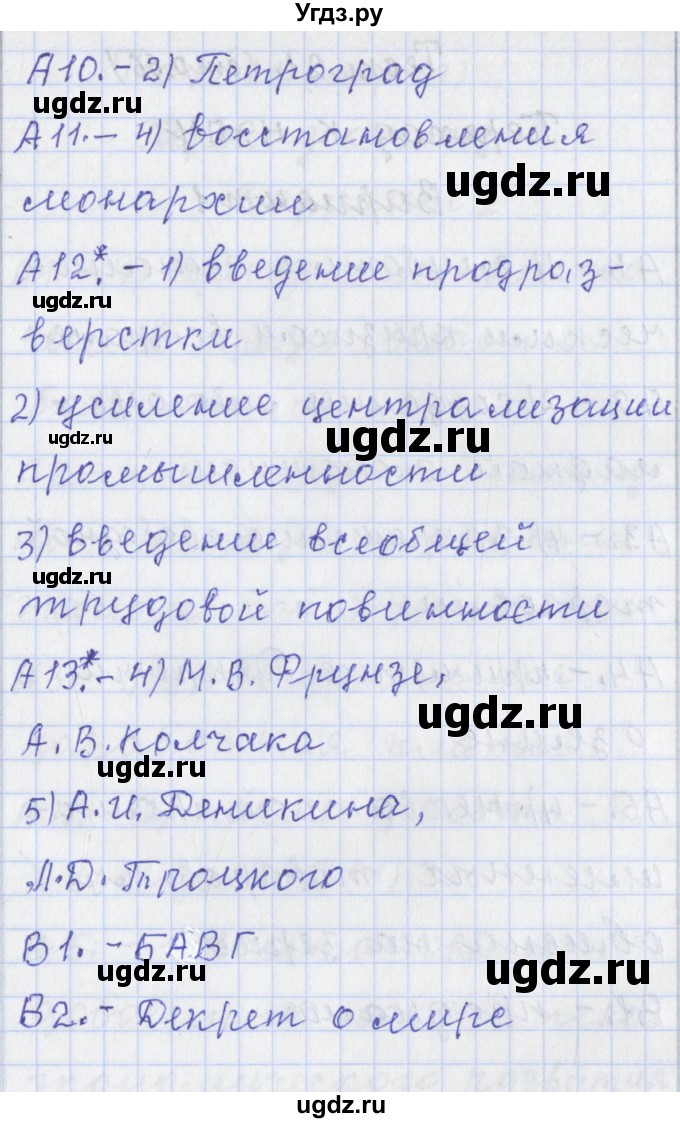 Угдз.ру
А10.-2) Петроград
ugdz.ru
А11.-4) восстановления
ugdz.ru
монархии
А12*.-1) введение продраз-
ugdz.ru
верстки
2) усиление централизации
ugdz.ru
ugdz.ru
промышленности
3) введение всеобщей
ugdz.ru
трудовой повинности
А13*.-4) М.В. Фрунзе,
ugdz.ru
А.В. Колчака
ugdz.ru
5) А.И. Деникина,
Л.Д. Троцкого
В1. - БАВГ
ugdz.ru
ugdz.ru
В2.- Декрет о мире
ugdz.ru